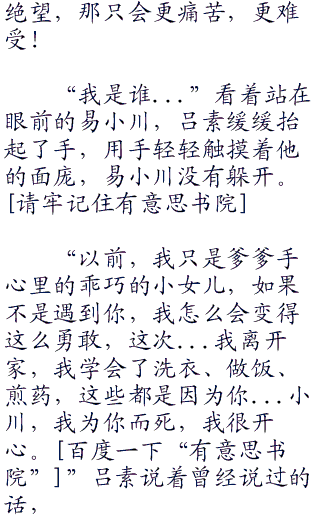 绝望，那只会更痛苦，更难
受！
“我是谁...”看着站在
眼前的易小川，吕素缓缓抬
起了手，用手轻轻触摸着他
的面庞，易小川没有躲开。
[请牢记住有意思书院]
“以前，我只是爹爹手
心里的乖巧的小女儿，如果
不是遇到你，我怎么会变得
这么勇敢，这次...我离开
家，我学会了洗衣、做饭、
煎药，这些都是因为你...小
川，我为你而死，我很开
心。[百度一下“有意思书
院”]”吕素说着曾经说过的
话，